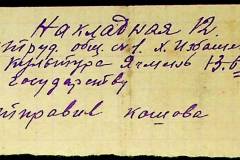 Накладная 12.
труд. общ. №1. Х.
Культура Ячмень 13.6
Государству
тправил кошова